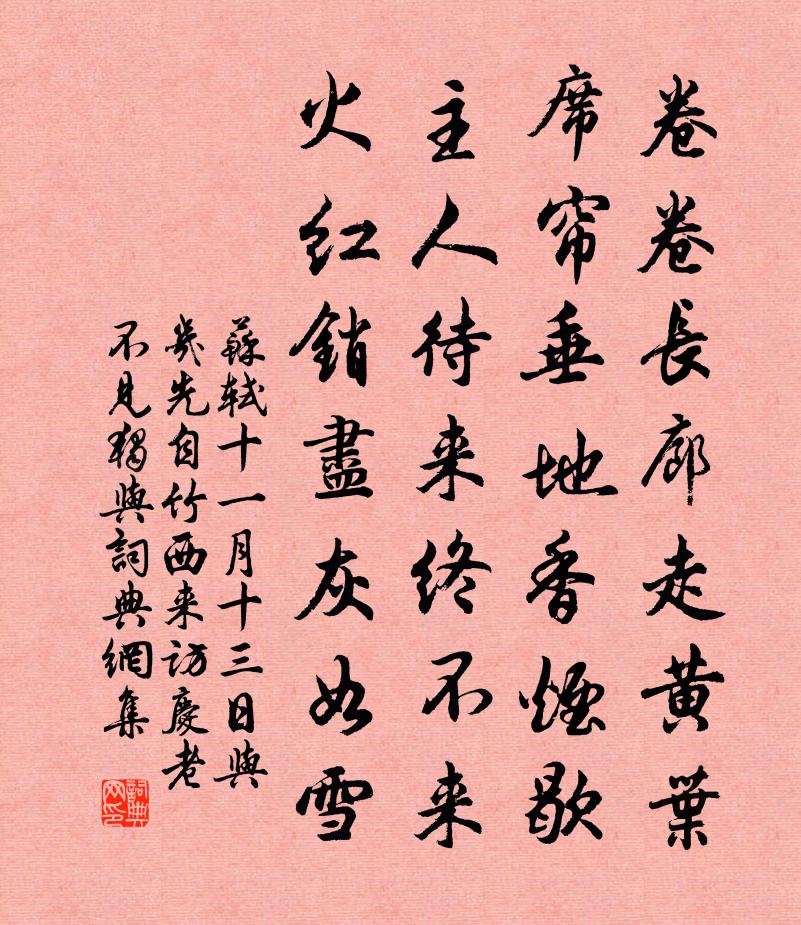 卷卷長廊走黃葉
席帘垂地香煙歇
主人待来終不来
火紅銷盡灰如雪
蘇軾十一月十三日與
幾先自竹西来訪慶老
不見獨與詞典網集
詞典网印